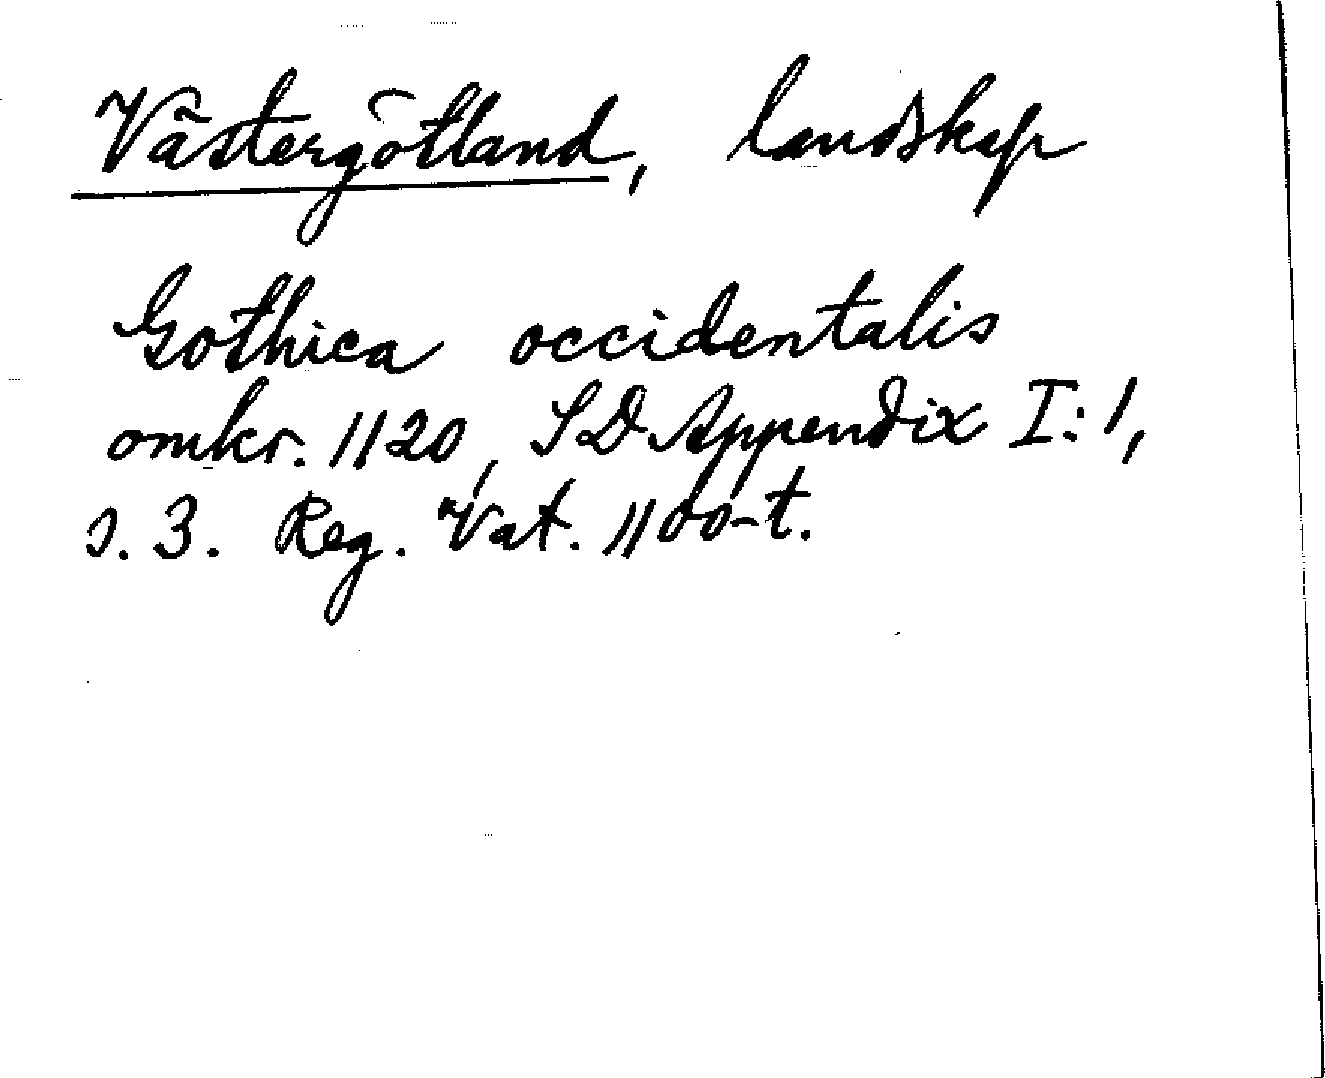 Västergötland, landskap
Gothica occidentalis
omkr. 1120, SD Appendix I:1,
s. 3. Reg. Vat. 1100-t.